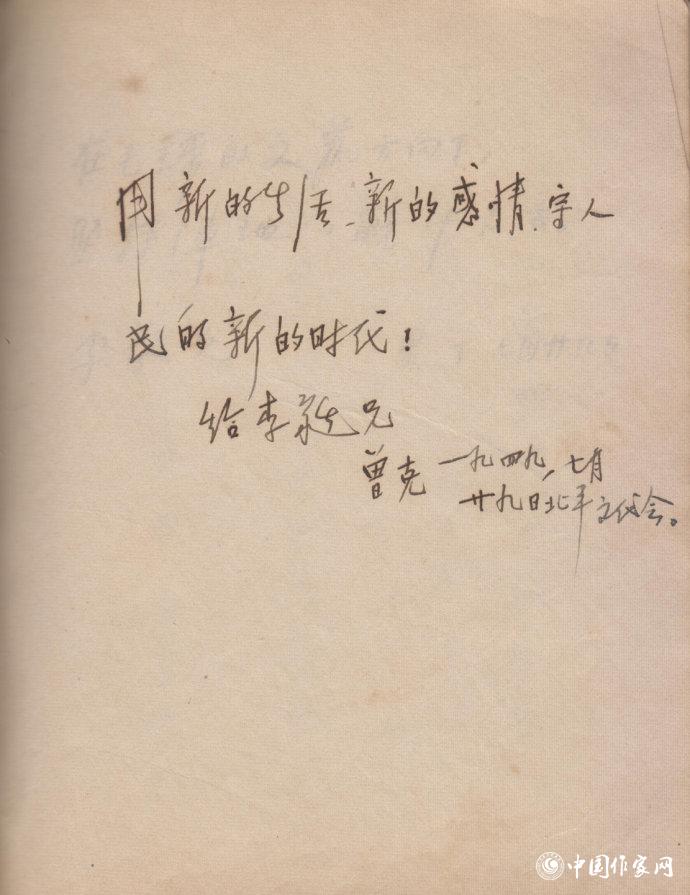 用新的生活、新的感情、写人
民的新的时代！
给李兄
曾克 一九四九、七月
廿九日北平文代会。
中国作家网